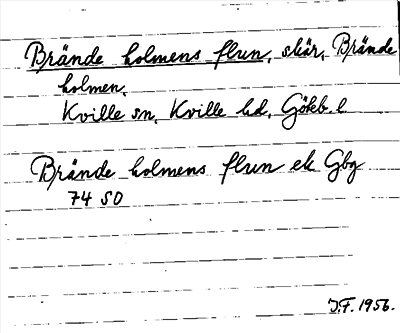 Brände holmens flun, skär, Brände
holmen,
Kville sn, Kville hd, Göteb. l
Brände holmens flun ek Gbg
74 SO
J.F. 1956.